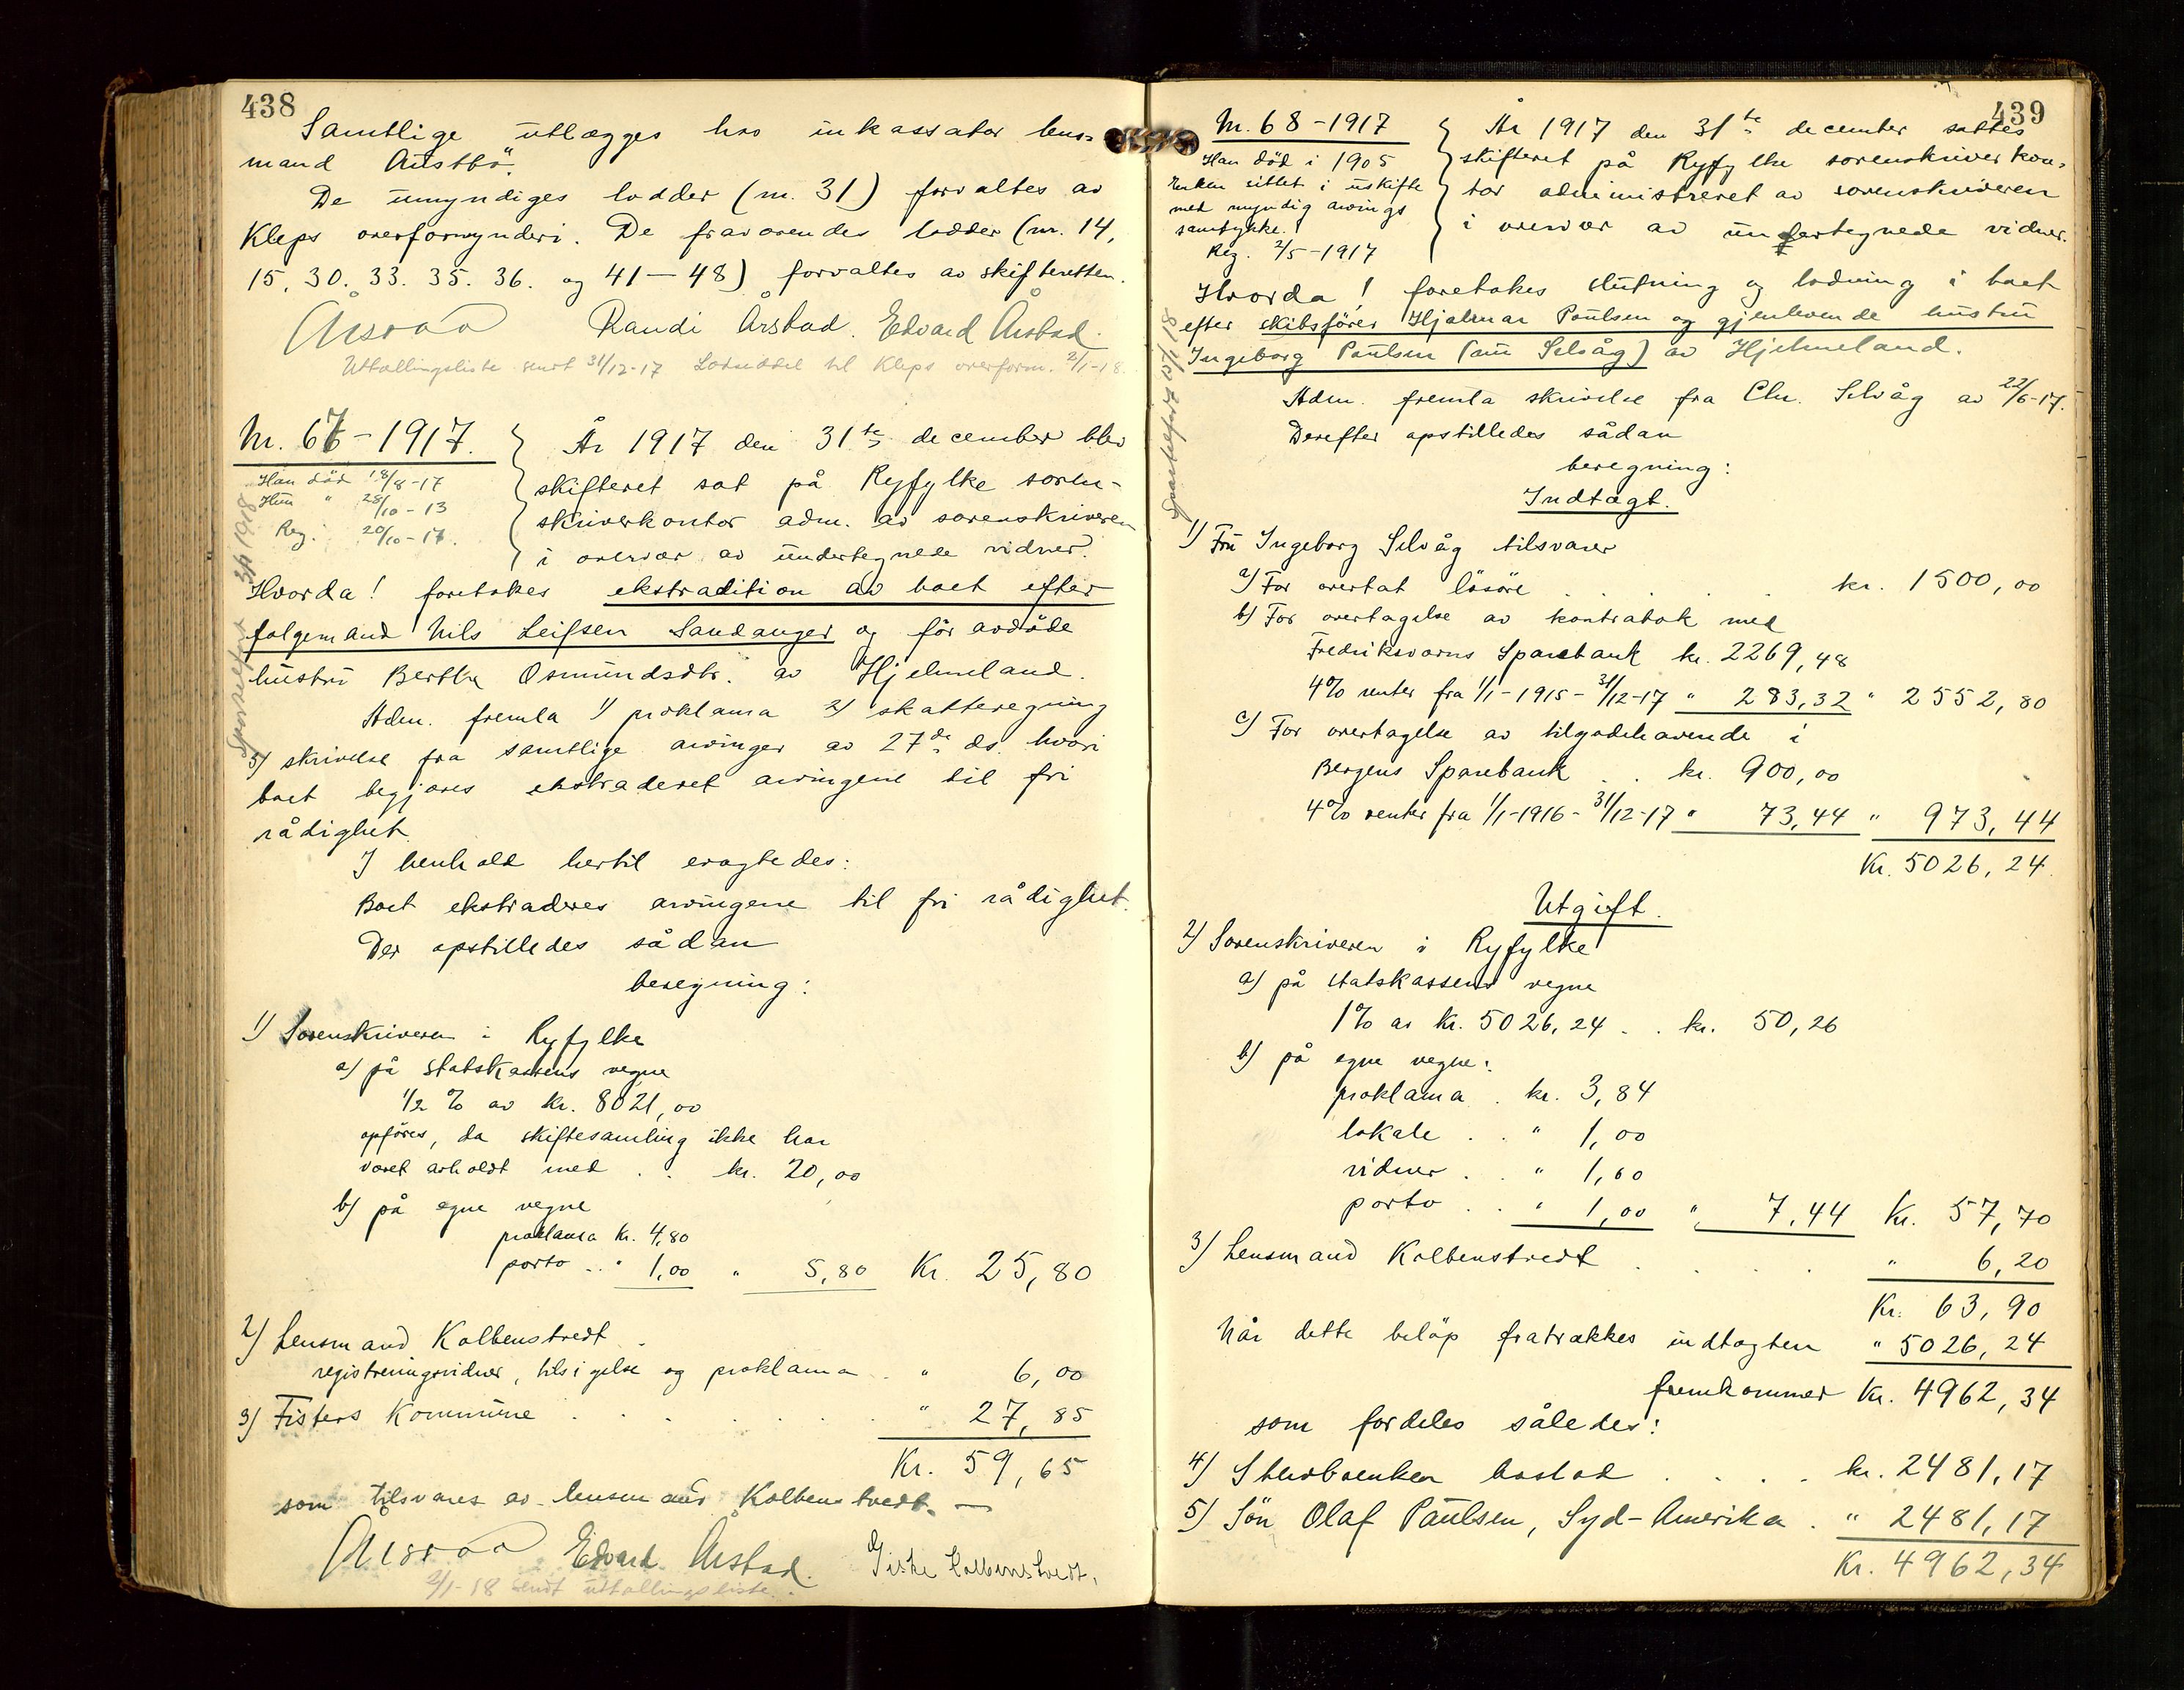 438
Samtlige utlægges hos inkassator lens-
mand Austbö.
De umyndiges lodder (nr. 31) forvaltes av
Kleps overformynderi. De fraværendes lodder (nr. 14,
15. 30. 33. 35. 36. og 41 — 48) forvaltes av skifteretten.
Årstad Randi Årstad. Edvard Årstad.
Uttællingsliste sendt 31/12-17 Loddseddel til Kleps overform. 2/1-18.
Nr. 67 - 1917.
Han död 18/8-17
Hun " 28/10-13
Reg. 20/10-17.
År 1917 den 31te december blev
skifteret sat på Ryfylke soren-
skriverkontor adm. av sorenskriveren
i overvær av undertegnede vidner.
Hvorda! foretokes ekstradition av boet efter
følgemand Nils Leifsen Sandanger og för avdöde
hustru Bertha Osmundsdtr. av Hjelmeland.
Adm. fremla 1) proklama 2) skatteregning
3) skrivelse fra samtlige arvinger av 27de ds. hvori
boet begjæres ekstraderet arvingene til fri
rådighet.
I henhold hertil eragtedes:
Boet ekstraderes arvingene til fri rådighet.
Der opstilledes sådan
beregning:
1) Sorenskriveren i Ryfylke
a) på statskassens vegne
1/2 % av kr. 8021,00
opföres, da skiftesamling ikke har
været avholdt med . . kr. 20,00
b) på egne vegne
proklama kr. 4,80
porto .. " 1,00 " 5,80 Kr. 25,80
2) Lensmand Kolbenstvedt .
registreringsvidner, tilsigelse og proklama . " 6,00
3) Fisters Kommune . . . . . . . " 27,85
Kr. 59,65
som tilsvares av lensmand Kolbenstvedt. —
Årstad Edvard Årstad. Giske Kolbenstvedt.
2/1-18 sendt uttællingsliste.
439
Nr. 68 - 1917
Han död i 1905
Enken sittet i uskifte
med myndig arvings
samtykke.
Reg. 2/5-1917
År 1917 den 31te december sattes
skifteret på Ryfylke sorenskriverkon-
tor administreret av sorenskriveren
i overvær av undertegnede vidner.
Hvorda! foretokes slutning og lodning i boet
efter skibsförer Hjalmar Paulsen og gjenlevende hustru
Ingeborg Paulsen (nu Selvåg) av Hjelmeland.
Adm. fremla skrivelse fra Chr. Selvåg av 22/6-17.
Derefter opstilledes sådan
beregning:
Indtægt.
1) Fru Ingeborg Selvåg tilsvarer
a) For overtat lösöre . . . . . kr. 1500,00
b) For overtagelse av kontrabok med
Fredriksværns Sparebank kr. 2269,48
4% renter fra 1/1-1915 - 31/12-17 " 283,32 " 2552,80
c) For overtagelse av tilgodehavende i
Bergens Sparebank . . kr. 900,00
4% renter fra 1/1-1916 - 31/12-17 " 73,44 " 973,44
Kr. 5026,24
Utgift.
2) Sorenskriveren i Ryfylke
a) på statskassens vegne
1% av kr. 5026,24 . . kr. 50,26
b) på egne vegne:
proklama . kr. 3,84
lokale . . " 1,00
vidner . . " 1,60
porto . . " 1,00 " 7,44 Kr. 57,70
3) Lensmand Kolbenstvedt . . . . " 6,20
Kr. 63,90
Når dette belöp fratrækkes indtægten " 5026,24
fremkommer Kr. 4962,34
som fordeles således:
4) Sterboenken boslod . . . . kr. 2481,17
5) Sön Olaf Paulsen, Syd-Amerika . " 2481,17
Kr. 4962,34